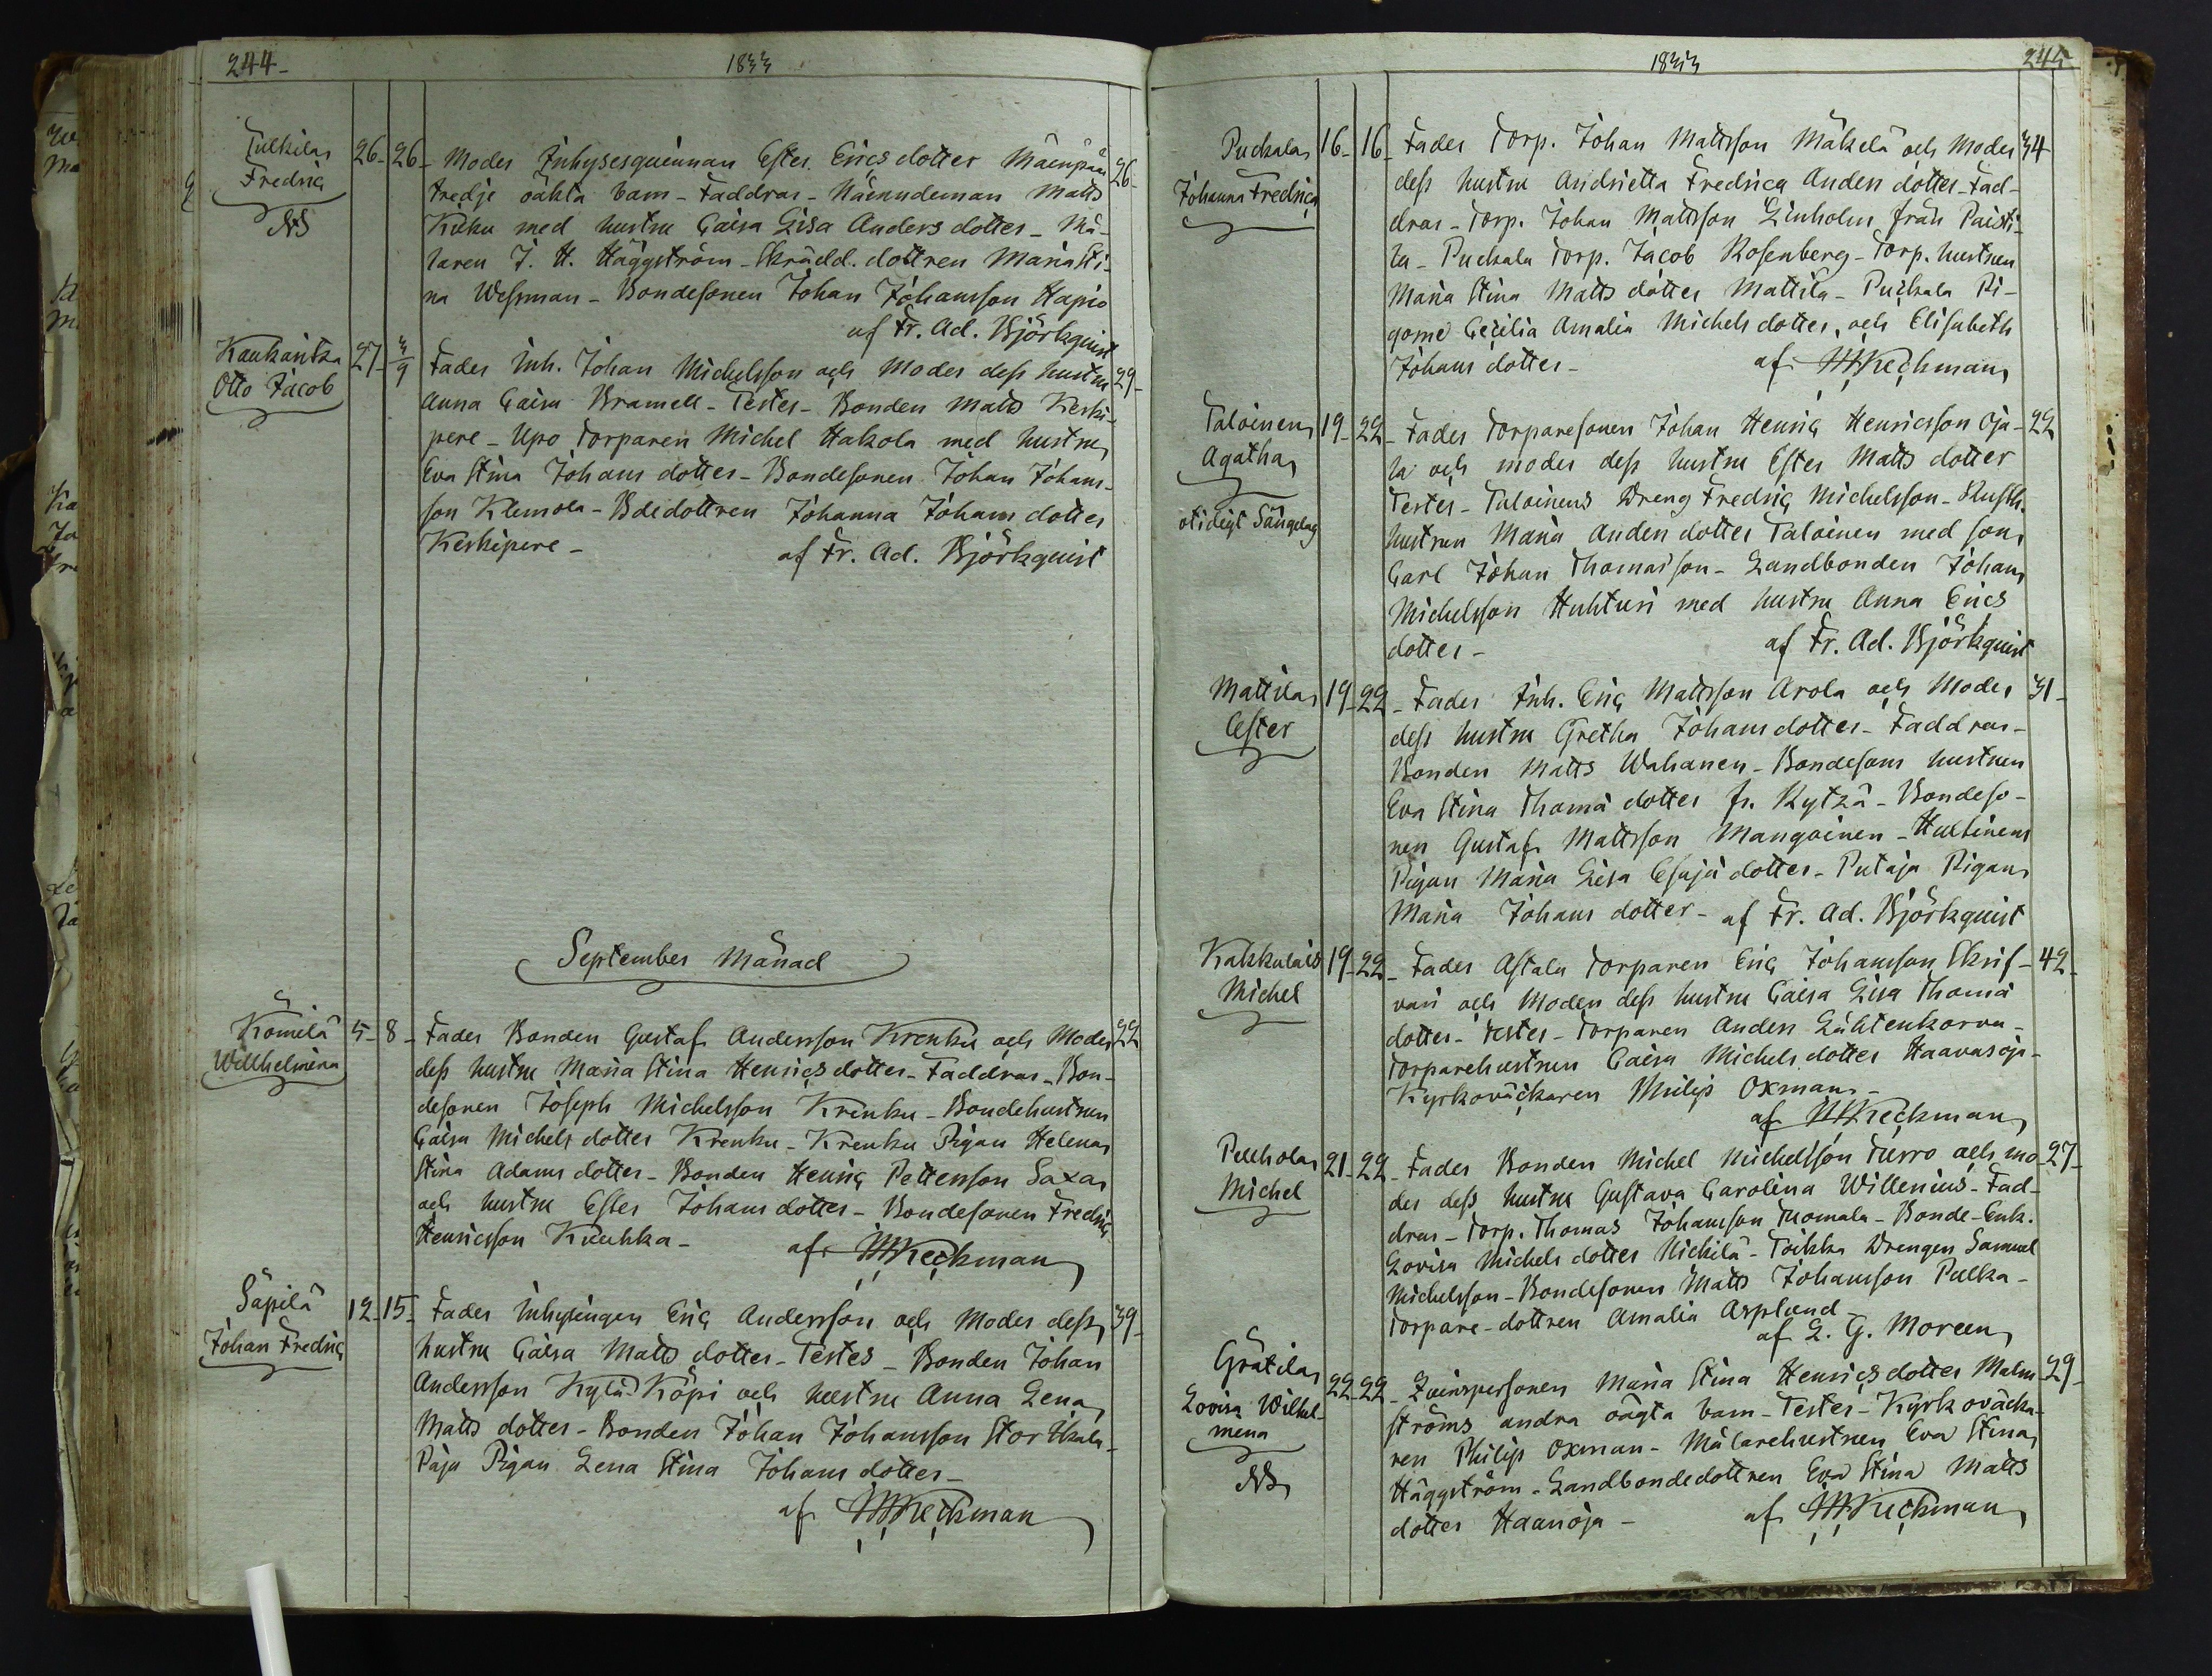 244-
1833
Tulkila
Fredric
NB
26- 26- Moder Inhysesquinnan Ester Erics dotter Mäenpää 26-
tredje oäkta barn - Faddrar - Nämndeman Matts
Kuku med hustru Caisa Lisa Anders dotter - Må-
laren J. H. Häggström - Skrädd. dottren Maria Sti-
na Wessman - Bondesonen Johan Johansson Hapio
af Fr. Ad. Björkquist
Kaukaritza
Otto Jacob
27- 3/9 Fader Inh. Johan Michelsson och Moder dess hustru 29-
Anna Caisa Bramell - Testes - Bonden Matts Keski-
pere - Upo Torparen Michel Hakola med hustru
Eva Stina Johans dotter - Bondesonen Johan Johans-
son Klemola - Bdedottren Johanna Johans dotter
Keskipere - af Fr. Ad. Björkquist
September Månad
Komilä
Willhelmina
5- 8- Fader Bonden Gustaf Andersson Krenku och Moder 22
dess hustru Maria Stina Henrics dotter - Faddrar - Bon-
desonen Joseph Michelsson Krenku - Bondehustrun
Caisa Michels dotter Krenku - Krenku Pigan Helena
Stina Adams dotter - Bonden Henric Pettersson Saxa
och hustru Ester Johans dotter - Bondesonen Fredric
Henricsson Kuuhka - af M Keckman
Säpilä
Johan Fredric
12- 15- Fader Inhysingen Eric Andersson och Moder dess 39-
hustru Caisa Matts dotter - Testes - Bonden Johan
Andersson Kylä Köpi och hustru Anna Lena
Matts dotter - Bonden Johan Johansson Stor Ukula -
Paja Pigan Lena Stina Johans dotter -
af M Keckman
1833
245
Puckala
Johanna Fredrica
16- 16- Fader Torp. Johan Mattsson Mäkelä och Moder 34
dess hustru Andrietta Fredrica Anders dotter - Fad-
drar - Torp. Johan Mattsson Linholm från Paisti-
la - Puckala Torp. Jacob Rosenberg - Torp. hustrun
Maria Stina Matts dotter Mattila - Puckala Pi-
gorne Cecilia Amalia Michels dotter, och Elisabeth
Johans dotter - af M Keckman
Taloinen
Agatha
otidigt Sängelag
19- 22- Fader Torparesonen Johan Henric Henricsson Oja- 22
la och moder dess hustru Ester Matts dotter
Testes - Taloinens Dreng Fredric Michelsson - Rusth.
hustrun Maria Anders dotter Taloinen med son
Carl Johan Thomasson - Landbonden Johan
Michelsson Huhturi med hustru Anna Erics
dotter - af Fr. Ad. Björkquist
Mattila
Ester
19- 22- Fader Inh. Eric Mattsson Arola och Moder 31-
dess hustru Gretha Johans dotter - Faddrar -
Bonden Matts Wahanen - Bondesons hustrun
Eva Stina Thomä dotter fr. Kytzä - Bondeso-
nen Gustaf Mattsson Mangoinen - Hultinens
Pigan Maria Lisa Esajä dotter - Putaja Pigan
Maria Johans dotter - af Fr. Ad. Björkquist
Kakkulais
Michel
19- 22- Fader Astala Torparen Eric Johansson Skrif- 42-
vari och Modern dess hustru Caisa Lisa Thomä
dotter - Testes - Torparen Anders Lähtenkorva -
Torparehustrun Caisa Michels dotter Haavasoja -
Kyrkoväckaren Philip Oxman -
af M Keckman
Peuhola
Michel
21- 22- Fader Bonden Michel Michelsson Turro och mo- 27-
der dess hustru Gustava Carolina Willenius - Fad-
drar - Torp. Thomas Johansson Tuomala - Bonde-Enk.
Lovisa Michels dotter Nickilä - Toikka Drengen Samuel
Michelsson - Bondesonen Matts Johansson Pulka -
Torpare-dottren Amalia Asplund -
af L. G. Moreen
Grätila
Lovisa Wilhel-
mina
NB
22- 22- Qvinspersonen Maria Stina Henrics dotter Malm- 29-
ströms andra oägta barn - Testes - Kyrkoväcka-
ren Philip Oxman - Målarehustrun Eva Stina
Häggström - Landbondedottren Eva Stina Matts
dotter Haanoja - af M Keckman